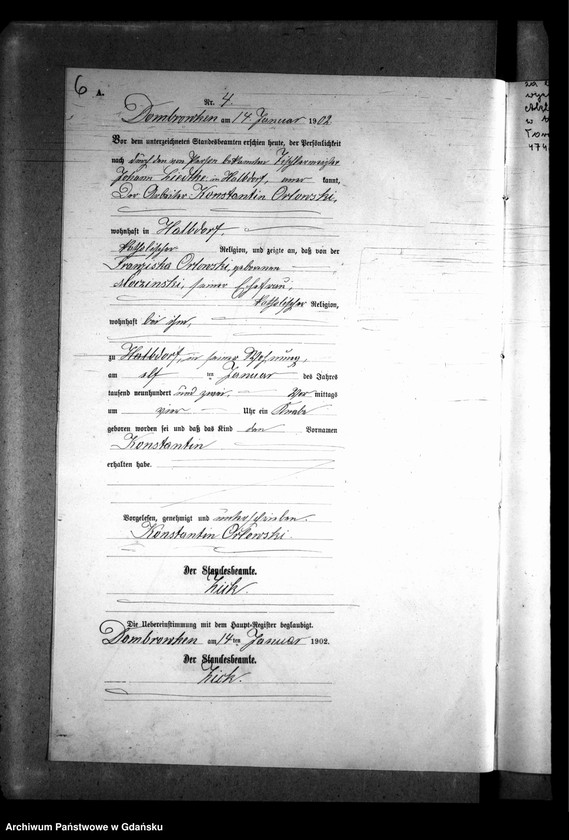 6
A.
Nr. 4.
Dombrowken am 14 Januar 1902
Vor dem unterzeichneten Standesbeamten erschien heute, der Persönlichkeit
nach durch den von Person bekannten Tischlermeister
Johann Liedtke in Halbdorf, aner kannt,
Der Arbeiter Konstantin Orlowski,
wohnhaft in Halbdorf
katholischer Religion, und zeigte an, daß von der
Franziska Orlowski, geborenen
seiner Ehefrau,
katholischer Religion,
wohnhaft bei ihm,
zu Halbdorf, in seiner Wohnung,
am elf ten Januar des Jahres
tausend neunhundert und zwei Vor mittags
um vier Uhr ein Knabe
geboren worden sei und daß das Kind den Vornamen
Konstantin
erhalten habe.
Vorgelesen, genehmigt und unterschrieben.
Konstantin Orlowski.
Der Standesbeamte.
Die Uebereinstimmung mit dem Haupt-Register beglaubigt.
Dombrowken am 14 ten Januar 1902.
Der Standesbeamte.
Archiwum Państwowe w Gdańsku